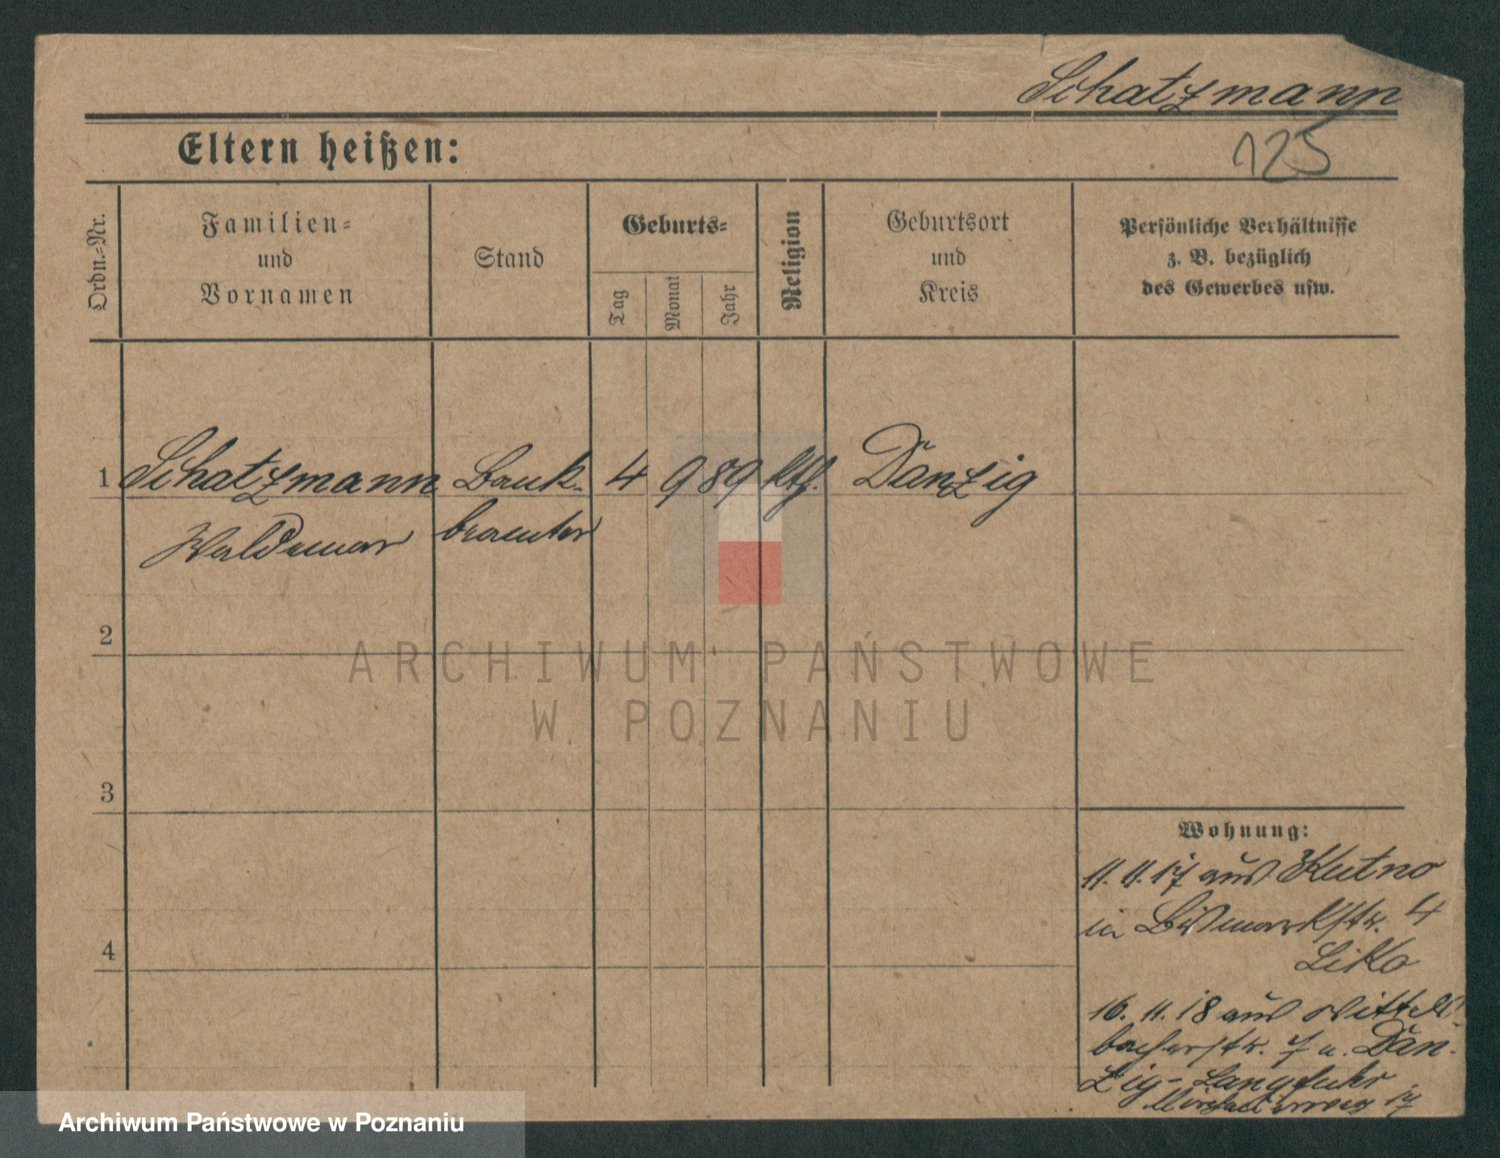 Schatzmann
125
Eltern heißen:
Ordn.-Nr.
Familien-
und
Vornamen
Stand
Geburts-
Tag
Monat
Jahr
Religion
Geburtsort
und
Kreis
Persönliche Verhältnisse
z. B. bezüglich
des Gewerbes usw.
1 Schatzmann Bank- 4 9 89 kth. Danzig
Waldemar beamter
2
ARCHIWUM PAŃSTWOWE
W POZNANIU
3
Wohnung:
11. 11. 17 aus Kutno
in Bismarckstr. 4
16. 11. 18 aus Wittels-
bacherstr. 7 n. Dan-
4
zig-Langfuhr
17
Archiwum Państwowe w Poznaniu